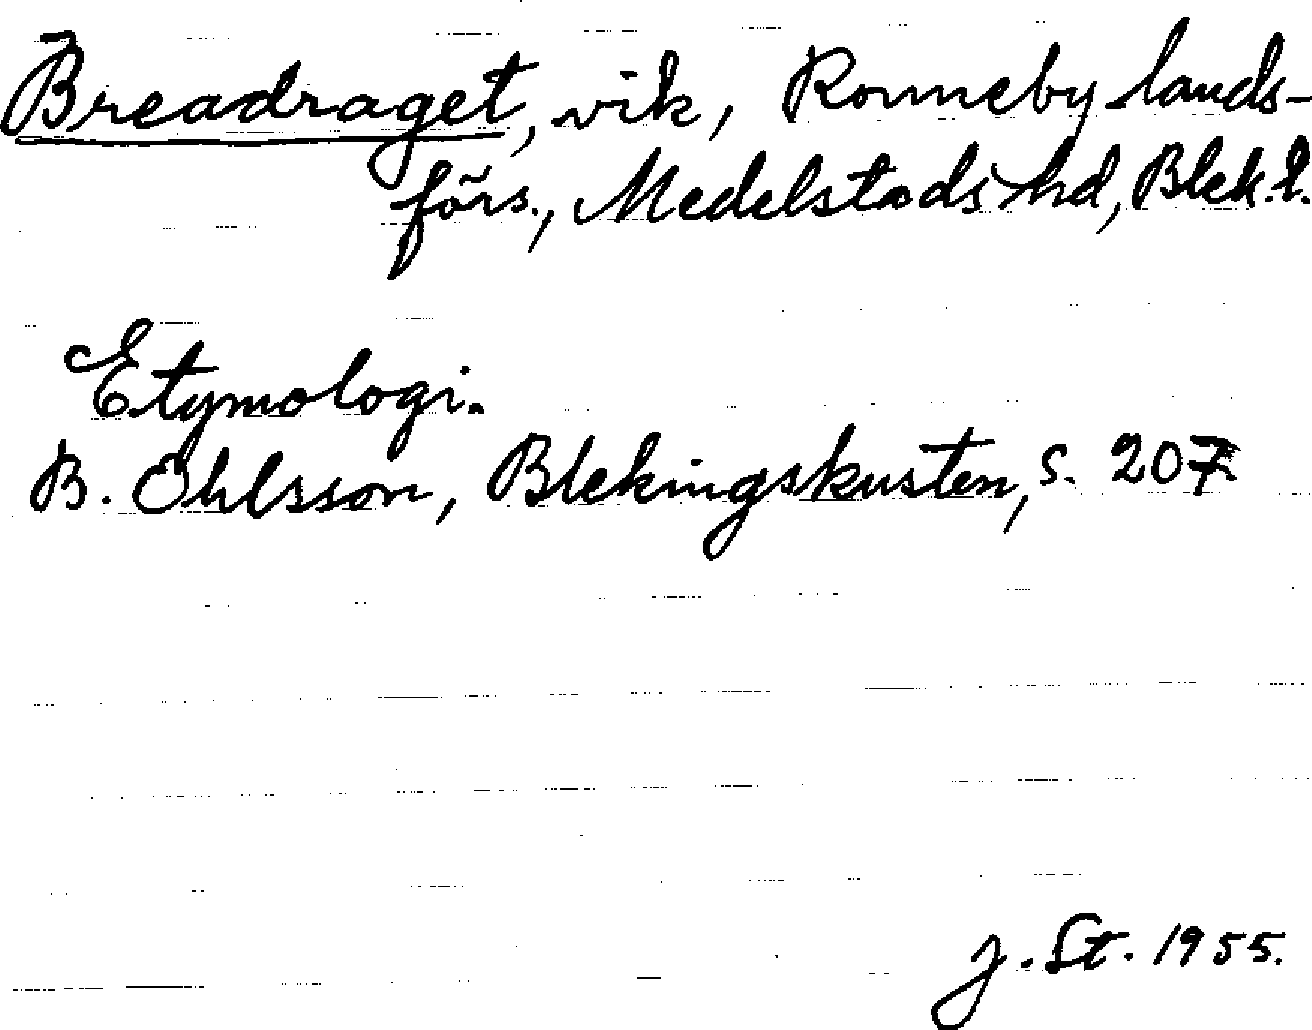 Breadraget, vik, Ronneby lands-
förs., Medelstads hd, Blek. l.
Etymologi.
B. Ohlsson, Blekingskusten, s. 207.
J. St. 1955.